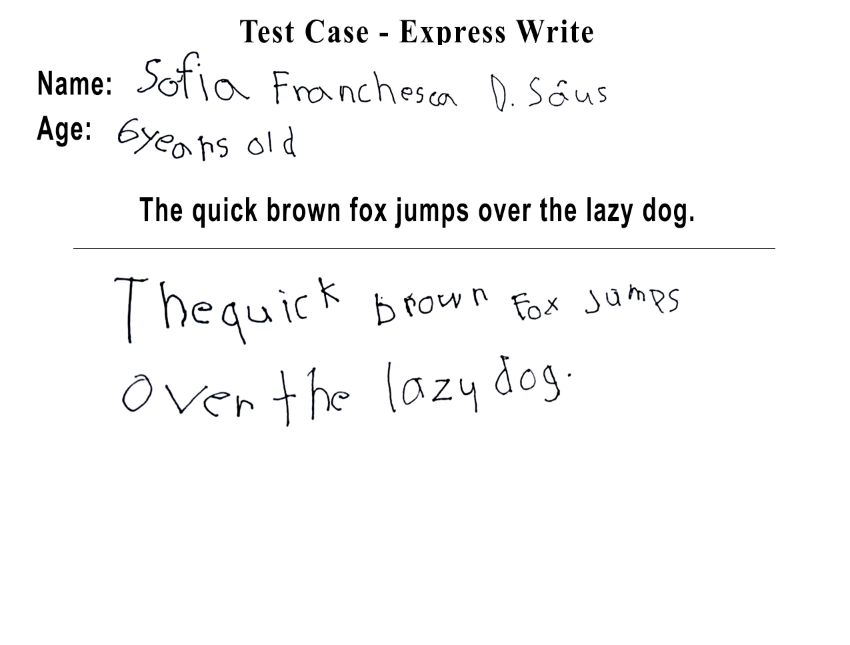 Test Case - Express Write
Name: Sofia Franchesca D. Sâus
Age: 6years old
The quick brown fox jumps over the lazy dog.
Thequick brown Fox Jumps
Over the lazy dog.